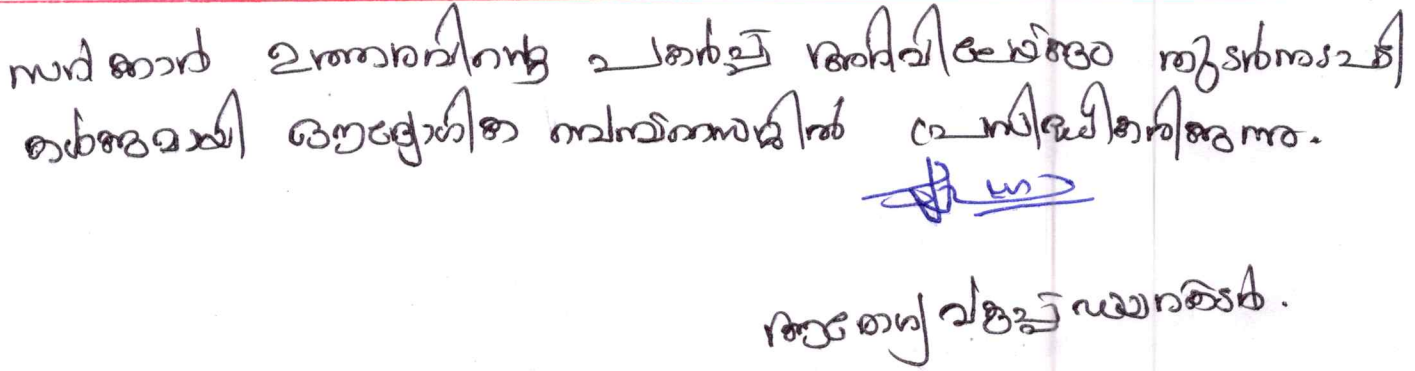 സർക്കാർ ഉത്തരവിന്റെ പകർപ്പ് അറിവിലേയ്ക്കും തുടർനടപടി
കൾക്കുമായി ഔദ്യോഗിക വെബ്സൈറ്റിൽ പ്രസിദ്ധീകരിക്കുന്നു.
ആരോഗ്യ വകുപ്പ് ഡയറക്ടർ.